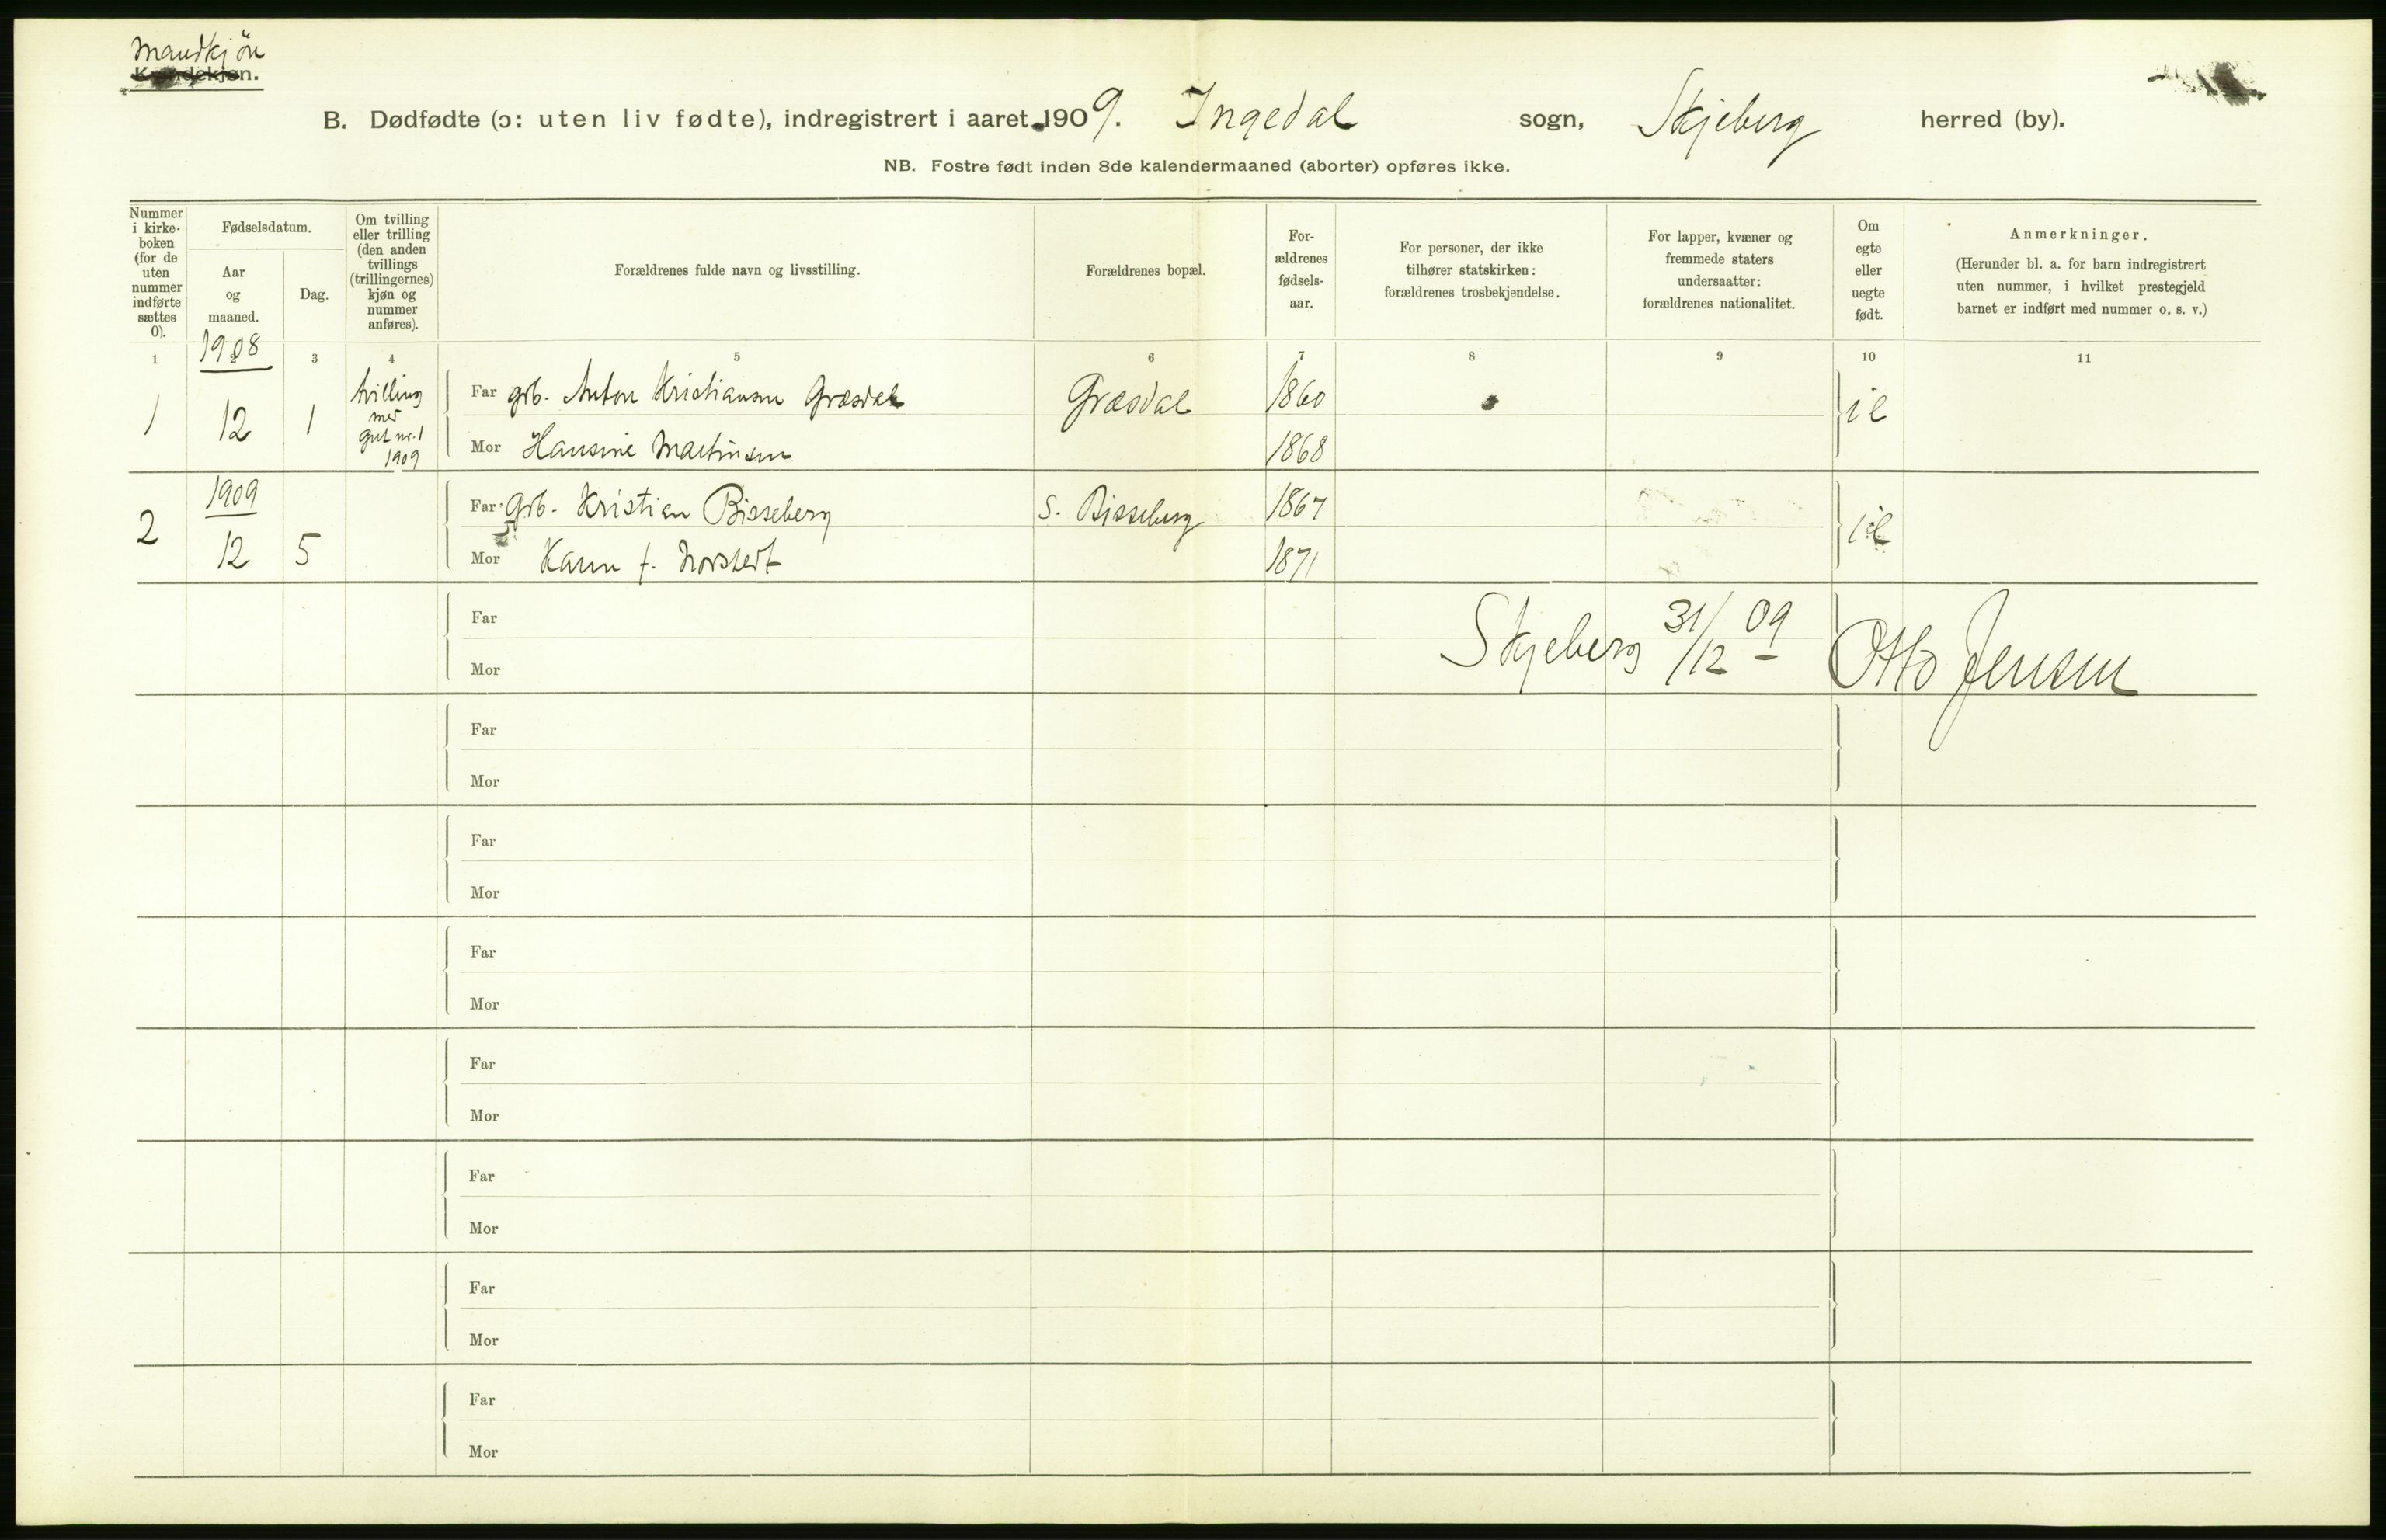 Mandkjøn
Kvindekjøn.
B. Dødfødte (ɔ: uten liv fødte), indregistrert i aaret 1909. Ingedal sogn, Skjeberg herred (by).
NB. Fostre født inden 8de kalendermaaned (aborter) opføres ikke.
Nummer
i kirke-
boken
(for de
uten
nummer
indførte
sættes
0).
Fødselsdatum.
Aar
og
maaned.
Dag.
Om tvilling
eller trilling
(den anden
tvillings
(trillingernes)
kjøn og
nummer
anføres).
Forældrenes fulde navn og livsstilling.
Forældrenes bopæl.
For-
ældrenes
fødsels-
aar.
For personer, der ikke
tilhører statskirken:
forældrenes trosbekjendelse.
For lapper, kvæner og
fremmede staters
undersaatter:
forældrenes nationalitet.
Om
egte
eller
uegte
født.
Anmerkninger.
(Herunder bl. a. for barn indregistrert
uten nummer, i hvilket prestegjeld
barnet er indført med nummer o. s. v.)
1 2 3 4 5 6 7 8 9 10 11
1908
1 12 1
tvilling
med
gut nr. 1
1909
Far grb. Anton Kristiansen Græsdal Græsdal 1860
Mor Hansine Martinsen 1868
1909
2 12 5
Far Grb. Kristian Bisseberg S. Bisseberg 1867
Mor Karen f. Norstedt 1871
Far
Mor
Skjeberg 31/12 09 Otto Jensen
Far
Mor
Far
Mor
Far
Mor
Far
Mor
Far
Mor
Far
Mor
Far
Mor